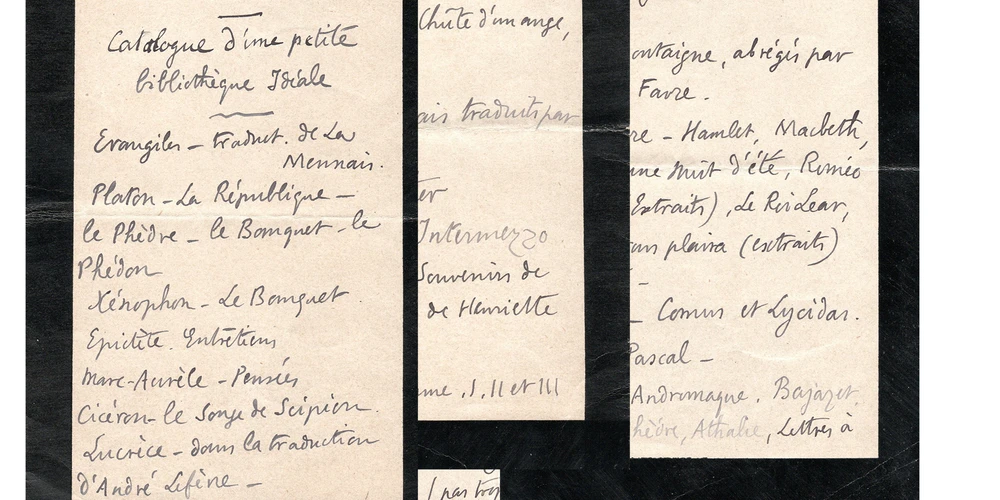 Catalogue d'une petite
bibliothèque Idéale
Evangiles – traduct. de La
Mennais.
Platon – La République –
le Phèdre – le Banquet – le
Phédon
Xénophon – Le Banquet.
Epictète. Entretiens
Marc-Aurèle – Pensées
Cicéron – le Songe de Scipion.
Lucrèce – dans la traduction
d'André Lefèvre –
Chûte d'un ange,
ais traduits par
ter
Intermezzo.
Souvenirs de
de Henriette
me, I, II et III
(pas trop
ontaigne, abrégés par
Favre.
re – Hamlet, Macbeth,
une Nuit d'été, Roméo
Extraits), Le Roi Lear,
ous plaira (extraits)
– Comus et Lycidas.
Pascal –
Andromaque. Bajazet.
hèdre, Athalie, Lettres à